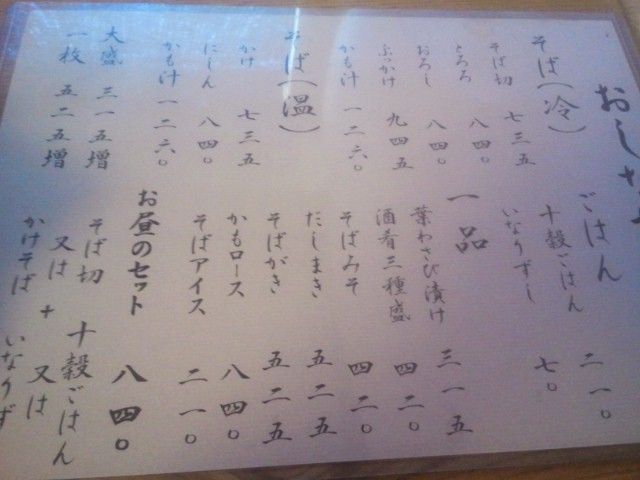 おしな
そば（冷）
そば切 七三五
とろろ 八四〇
おろし 八四〇
ぶっかけ 九四五
かも汁 一二六〇
そば（温）
かけ 七三五
にしん 八四〇
かも汁 一二六〇
大盛 三一五増
一枚 五二五増
ごはん
十穀ごはん 二一〇
いなりずし 七〇
一品
葉わさび漬け 三一五
酒肴三種盛 四二〇
そばみそ 四二〇
だしまき 五二五
そばがき 五二五
かもロース 八四〇
そばアイス 二一〇
お昼のセット 八四〇
そば切 十穀ごはん
又は + 又は
かけそば いなりず